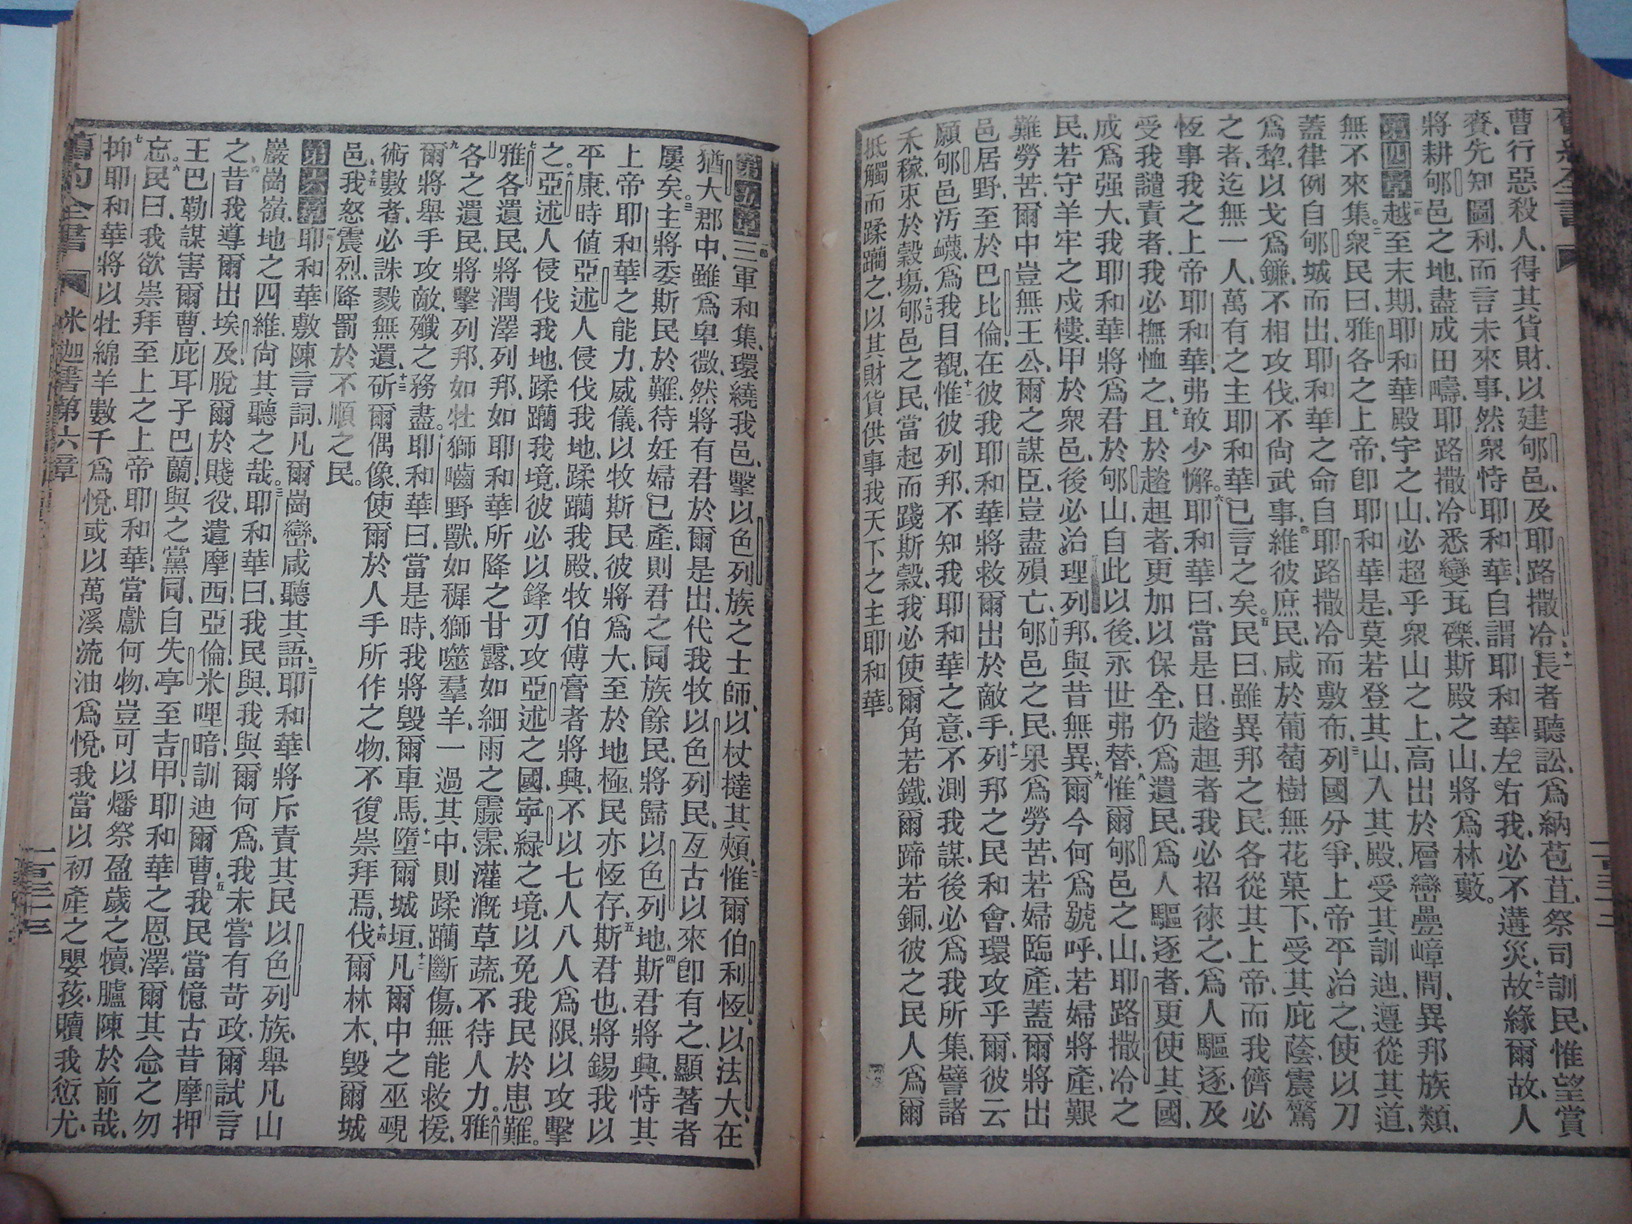 曹行惡殺人、得其貨財、以建郇邑、及耶路撒冷、長者聽訟、爲納苞苴、祭司訓民、惟望賞
賚、先知圖利、而言未來事、然衆恃耶和華、自謂耶和華左右我、必不遘災、故緣爾故、人
將耕郇邑之地、盡成田疇、耶路撒冷悉變瓦礫、斯殿之山、將爲林藪。
第四章 越至末期、耶和華殿宇之山、必超乎衆山之上、高出於層巒疊嶂間、異邦族類、
無不來集、衆民曰、雅各之上帝、卽耶和華是、莫若登其山、入其殿、受其訓迪、遵從其道、
蓋律例自郇城而出、耶和華之命、自耶路撒冷而敷布、列國分爭、上帝平治之、使以刀
爲犂、以戈爲鎌、不相攻伐、不尙武事、維彼庶民、咸於葡萄樹無花菓下、受其庇蔭、震驚
之者、迄無一人、萬有之主耶和華、已言之矣。民曰、雖異邦之民、各從其上帝、而我儕必
恆事我之上帝耶和華、弗敢少懈、耶和華曰、當是日、趦趄者我必招徠之、爲人驅逐、及
受我譴責者、我必撫恤之、且於趦趄者、更加以保全、仍爲遺民、爲人驅逐者、更使其國
成爲强大、我耶和華將爲君於郇山、自此以後、永世弗替、惟爾郇邑之山、耶路撒冷之
民、若守羊牢之戍樓、甲於衆邑、後必治理列邦、與昔無異、爾今何爲號呼、若婦將產、艱
難勞苦、爾中豈無王公、爾之謀臣、豈盡殞亡、郇邑之民、果爲勞苦、若婦臨產、蓋爾將出
邑居野、至於巴比倫、在彼我耶和華將救爾出於敵手、列邦之民和會、環攻乎爾、彼云、
願郇邑汚衊、爲我目覩、惟彼列邦、不知我耶和華之意、不測我謀、後必爲我所集、譬諸
禾稼、束於穀塲、郇邑之民、當起而踐斯穀、我必使爾角若鐵、爾蹄若銅、彼之民人、爲爾
抵觸而蹂躪之、以其財貨、供事我天下之主耶和華。
第五章 三軍和集、環繞我邑、擊以色列族之士師、以杖撻其頰、惟爾伯利恆、以法大、在
猶大郡中、雖爲卑微、然將有君於爾是出、代我牧以色列民、亙古以來、卽有之、顯著者
屢矣。主將委斯民於難、待妊婦已產、則君之同族餘民、將歸以色列地、斯君將興、恃其
上帝耶和華之能力威儀、以牧斯民、彼將爲大、至於地極、民亦恆存、斯君也、將錫我以
平康、時値亞述人侵伐我地、蹂躪我殿、牧伯傅膏者將興、不以七人八人爲限、以攻擊
之、亞述人侵伐我地、蹂躪我境、彼必以鋒刃攻亞述之國、寧綠之境、以免我民於患難。
雅各遺民、將潤澤列邦、如耶和華所降之甘露、如細雨之霢霂、灌漑草蔬、不待人力、雅
各之遺民、將擊列邦、如牡獅嚙野獸、如穉獅噬羣羊、一過其中、則蹂躪斷傷、無能救援、
爾將舉手攻敵、殲之務盡。耶和華曰、當是時、我將毀爾車馬、墮爾城垣、凡爾中之巫覡
術數者、必誅戮無遺、斫爾偶像、使爾於人手所作之物、不復崇拜焉、伐爾林木、毀爾城
邑、我怒震烈、降罰於不順之民。
第六章 耶和華敷陳言詞、凡爾崗巒、咸聽其語、耶和華將斥責其民、以色列族、舉凡山
巖崗嶺、地之四維、尙其聽之哉、耶和華曰、我民與、我與爾何爲、我未嘗有苛政、爾試言
之、昔我導爾出埃及、脫爾於賤役、遣摩西亞倫米哩暗、訓迪爾曹、我民當憶古昔、摩押
王巴勒謀害爾曹、庇耳子巴蘭與之黨同、自失亭至吉甲、耶和華之恩澤、爾其念之勿
忘。民曰、我欲崇拜至上之上帝耶和華、當獻何物、豈可以燔祭盈歲之犢、臚陳於前哉、
抑耶和華將以牡綿羊數千爲悅、或以萬溪流油爲悅、我當以初產之嬰孩、贖我愆尤、
舊約全書 米迦書第六章 一百三十三